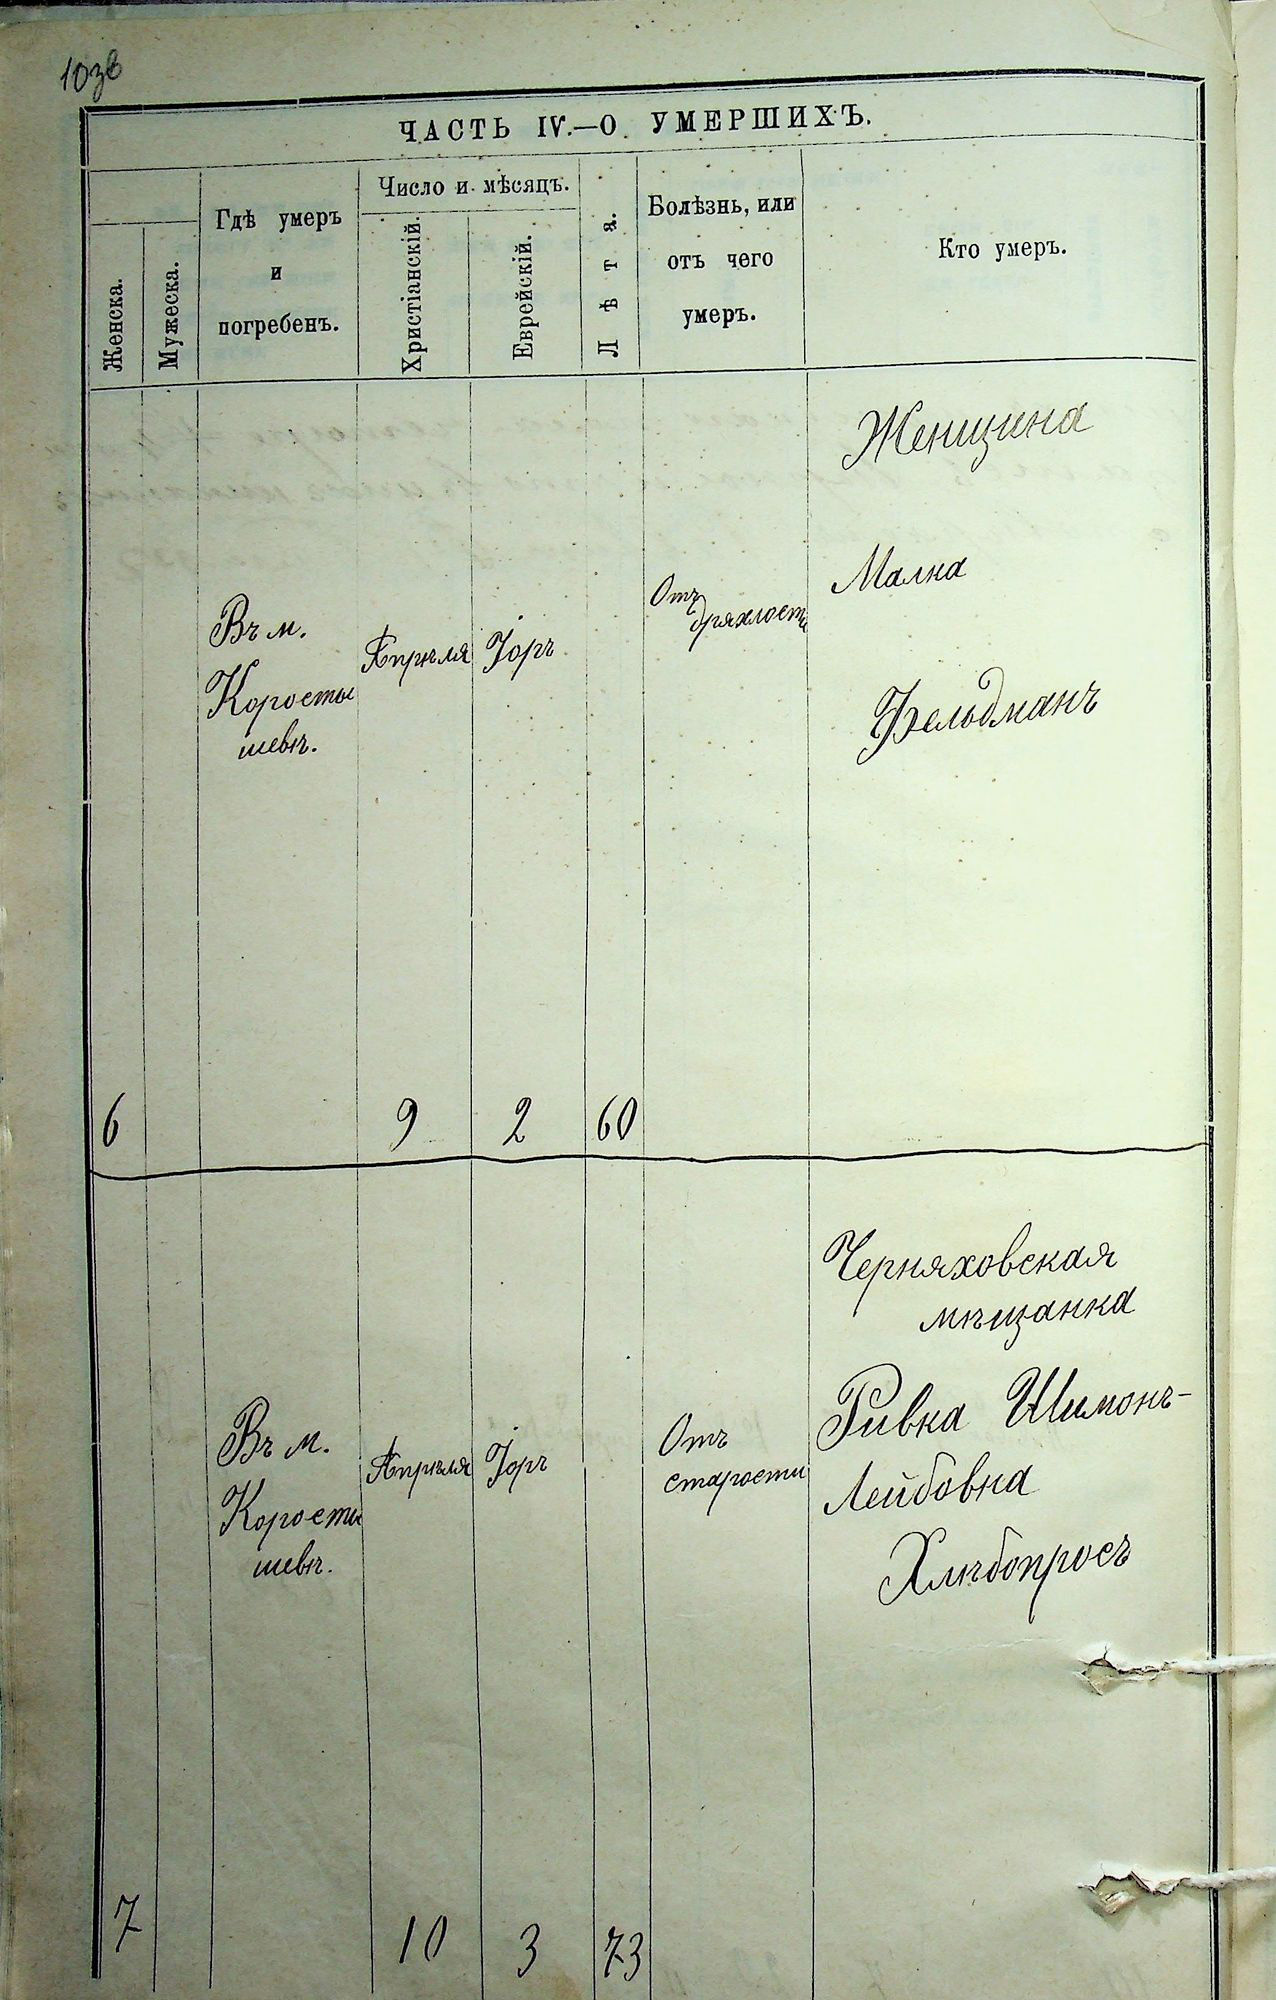 10зв
ЧАСТЬ IV.—О УМЕРШИХЪ.
Женска.
Мужеска.
Гдѣ умеръ
и
погребенъ.
Число и мѣсяцъ.
Христіанскій.
Еврейскій.
Лѣта.
Болѣзнь, или
отъ чего
умеръ.
Кто умеръ.
6
Въ м.
Коросты
шевѣ.
Апрѣля
9
Іоръ
2
60
Отъ
дряхлости
Женщина
Малка
Фельдманъ
7
Въ м.
Коросты
шевѣ.
Апрѣля
10
Іоръ
3
73
Отъ
старости
Черняховская
мѣщанка
Ривка Шимонъ-
Лейбовна
Хлѣбопросъ